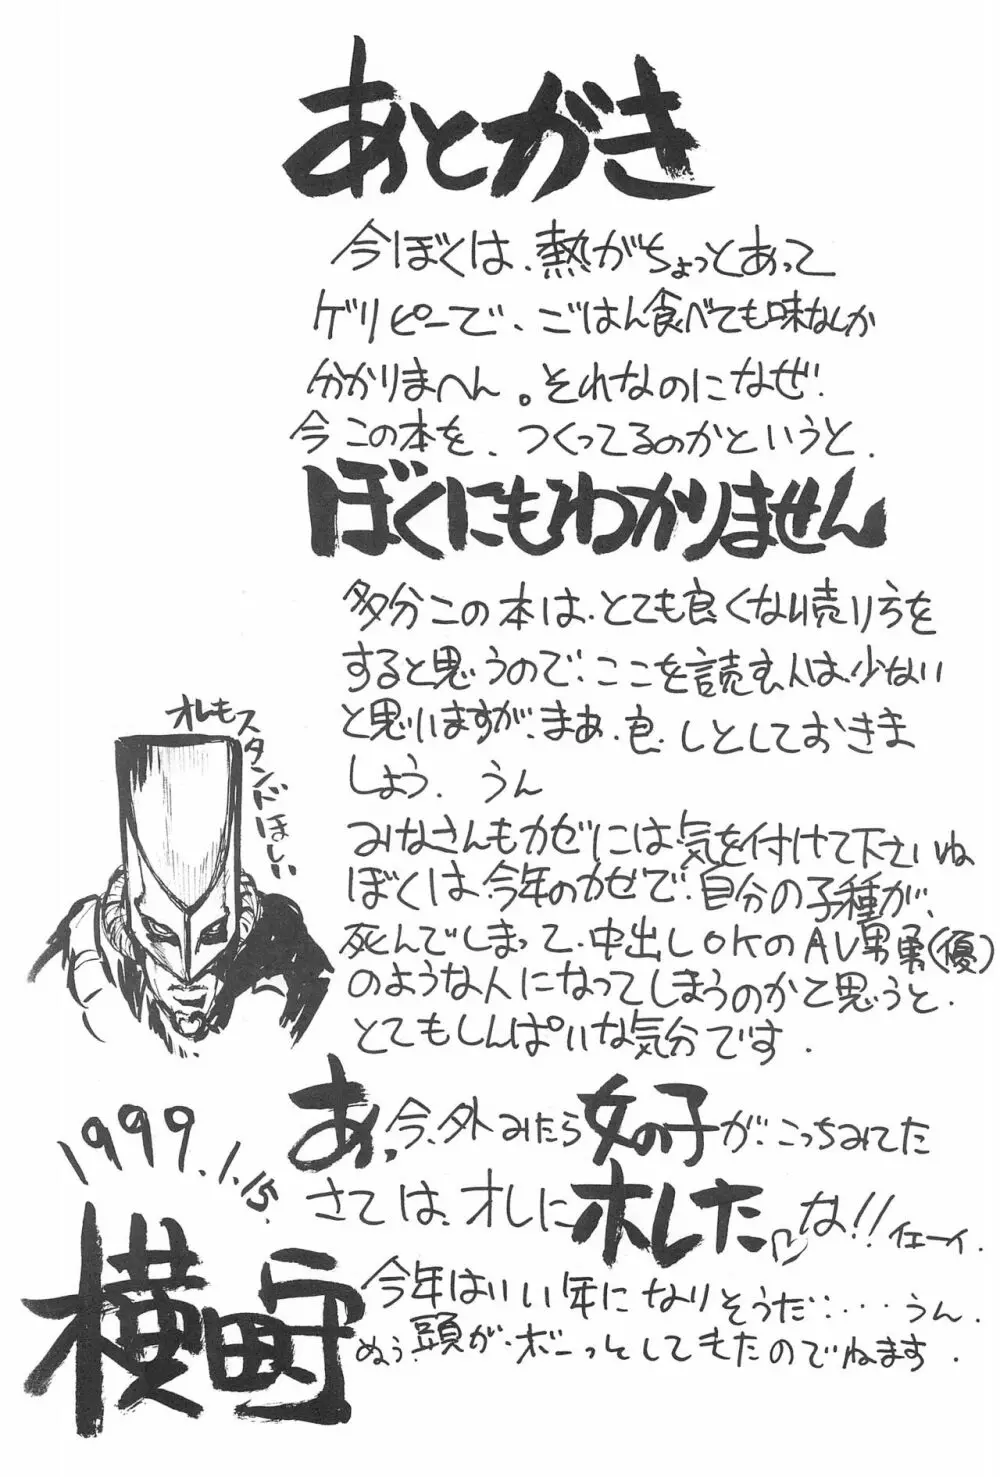 あとがき
今ぼくは、熱がちょっとあって
ゲリピーで、ごはん食べても味なんか
分かりまへん。それなのになぜ
今この本を、つくってるのかというと、
ぼくにもわかりません
多分この本は、とても良くない売り方を
すると思うので、ここを読む人は、少ない
と思いますが、まあ、良しとしておきま
しょう、うん
みなさんもカゼには気を付けて下さいね
ぼくは、今年のカゼで、自分の子種が、
死んでしまって、中出しOKのAV男勇(優)
のような人になってしまうのかと思うと、
とてもしんぱいな気分です、
オレもスタンドほしい
あ、今、外みたら女の子が、こっちみてた
さては、オレにホレた♡な!!イエーイ、
今年はいい年になりそうだ、・・・うん、
ぬぅ、頭が、ボーっとしてきたのでねます、
1999.1.15.
横田守